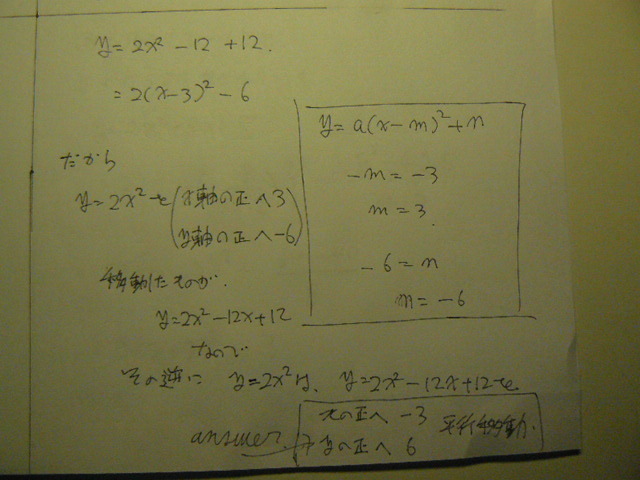 y = 2x² - 12 + 12.
= 2(x-3)² - 6
だから
y = 2x² を (x軸の正へ3
y軸の正へ-6)
移動したものが.
y = 2x² - 12x + 12
なので
その逆に y = 2x² は、 y = 2x² - 12x + 12 を
xの正へ -3
yの正へ 6
平行移動.
answer →
y = a(x-m)² + n
-m = -3
m = 3.
-6 = n
n = -6